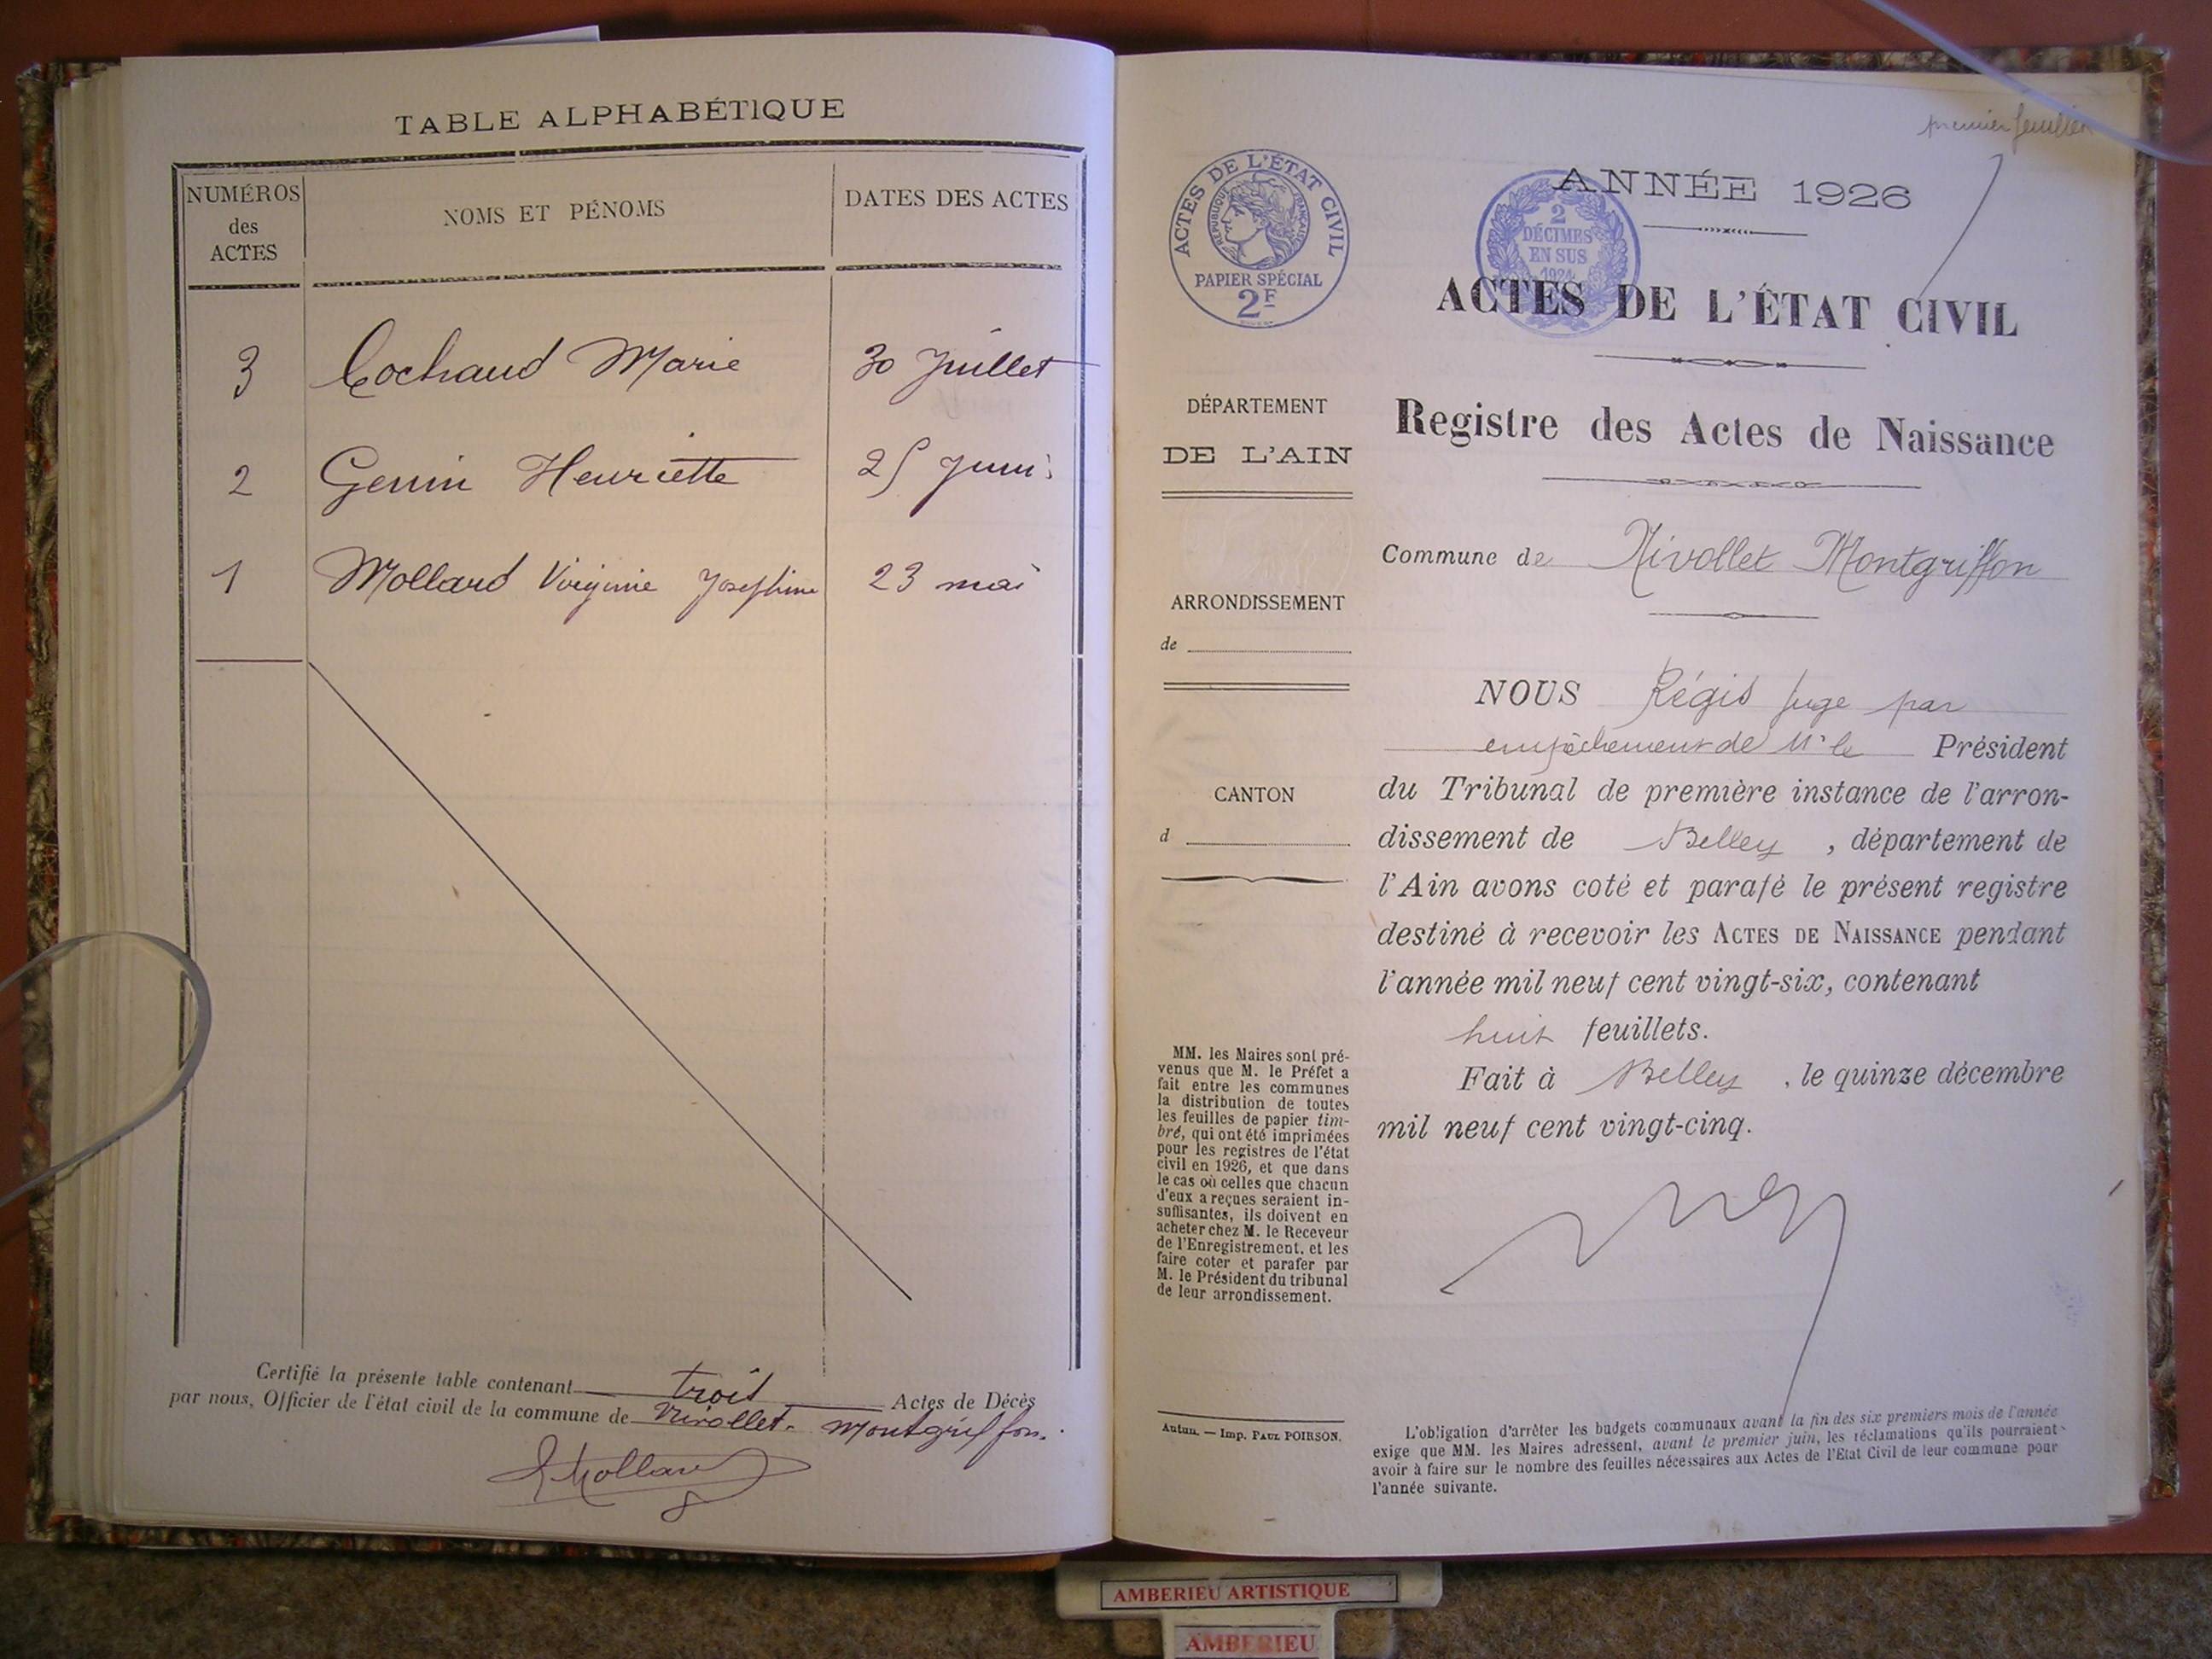 TABLE ALPHABÉTIQUE
NUMÉROS
des
ACTES
NOMS ET PÉNOMS
DATES DES ACTES
3 Cochaud Marie 30 Juillet
2 Genin Henriette 25 Juin
1 Mollard Virginie Josephine 23 mai
Certifié la présente table contenant trois Actes de Décès
par nous, Officier de l'état civil de la commune de Nivollet-Montgriffon.
Mollard
premier feuillet
ACTES DE L'ÉTAT CIVIL
RÉPUBLIQUE FRANÇAISE
PAPIER SPÉCIAL
2F
2
DÉCIMES
EN SUS
1924
ANNÉE 1926
ACTES DE L'ÉTAT CIVIL
Registre des Actes de Naissance
DÉPARTEMENT
DE L'AIN
Commune de Nivollet Montgriffon
ARRONDISSEMENT
de
CANTON
d
NOUS Régis Juge par
empêchement de Mr le Président
du Tribunal de première instance de l'arron-
dissement de Belley, département de
l'Ain avons coté et parafé le présent registre
destiné à recevoir les ACTES DE NAISSANCE pendant
l'année mil neuf cent vingt-six, contenant
huit feuillets.
Fait à Belley, le quinze décembre
mil neuf cent vingt-cinq.
MM. les Maires sont pré-
venus que M. le Préfet a
fait entre les communes
la distribution de toutes
les feuilles de papier tim-
bré, qui ont été imprimées
pour les registres de l'état
civil en 1926, et que dans
le cas où celles que chacun
d'eux a reçues seraient in-
suffisantes, ils doivent en
acheter chez M. le Receveur
de l'Enregistrement, et les
faire coter et parafer par
M. le Président du tribunal
de leur arrondissement.
Autun. — Imp. PAUL POIRSON.
L'obligation d'arrêter les budgets communaux avant la fin des six premiers mois de l'année
exige que MM. les Maires adressent, avant le premier juin, les réclamations qu'ils pourraient
avoir à faire sur le nombre des feuilles nécessaires aux Actes de l'Etat Civil de leur commune pour
l'année suivante.
AMBERIEU ARTISTIQUE
AMBERIEU